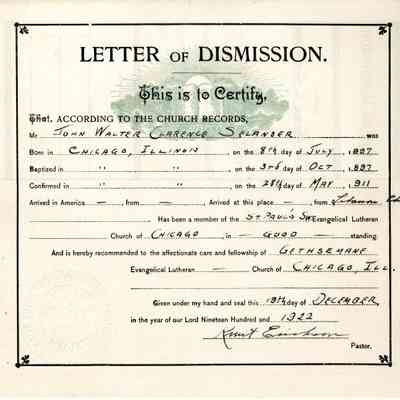 LETTER OF DISMISSION.
This is to Certify,
That. ACCORDING TO THE CHURCH RECORDS,
Mr JOHN WALTER CLARENCE SELANDER was
Born in CHICAGO, ILLINOIS, on the 8th day of JULY, 1897
Baptized in " " , on the 3rd day of OCT, 1897
Confirmed in " " , on the 28th day of MAY, 1911
Arrived in America —, from —, Arrived at this place —, from
Has been a member of the ST PAUL'S Evangelical Lutheran
Church of CHICAGO, in — GOOD — standing.
And is hereby recommended to the affectionate care and fellowship of GETHSEMANE
Evangelical Lutheran — Church of CHICAGO, ILL.
Given under my hand and seal this 19th day of DECEMBER,
in the year of our Lord Nineteen Hundred and 1922
Knut Erickson
Pastor.